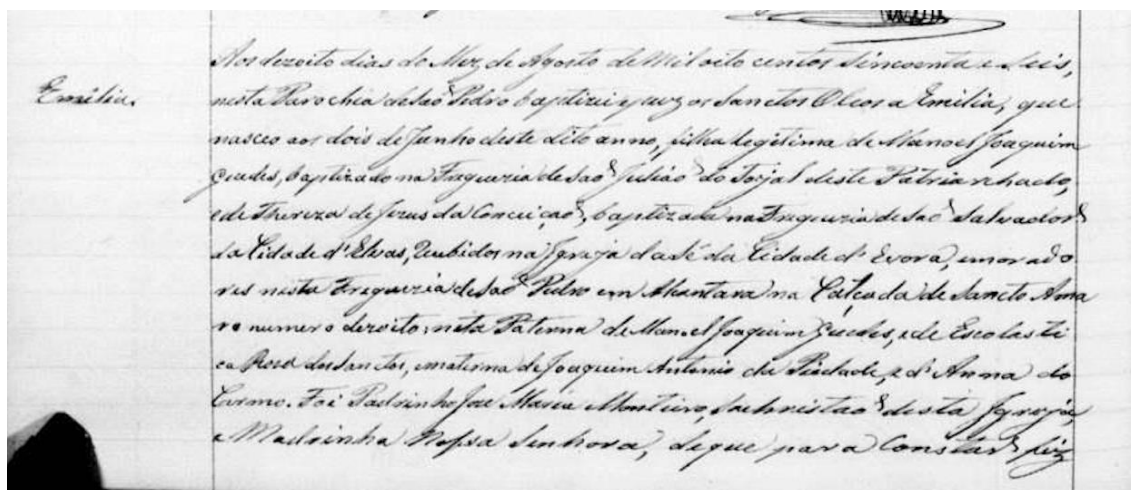 Emilia.
Aos dezoito dias do Mez de Agosto de Mil oito centos Sincoenta e Seis,
nesta Parochia de São Pedro baptizei e puz os Sanctos Oleos a Emilia, que
nasceo aos dois de Junho deste dito anno, filha legitima de Manoel Joaquim
Guedes, baptizado na Freguezia de São Julião do Tojal deste Patriarchado,
e de Thereza de Jezus da Conceição, baptizada na Freguezia de São Salvador
da Cidade d'Elvas, Recebidos na Igreja da Sé da Cidade d'Evora, e morado
res nesta Freguezia de São Pedro em Alcantara na Calçada de Sancto Ama
ro numero dezoito: neta Paterna de Manoel Joaquim Guedes, e de Escolasti
ca Roza dos Santos, e materna de Joaquim Antonio da Piedade, e d'Anna do
Carmo. Foi Padrinho Joze Maria Monteiro, Sachristão desta Igreja,
e Madrinha Nossa Senhora, de que para constar fiz